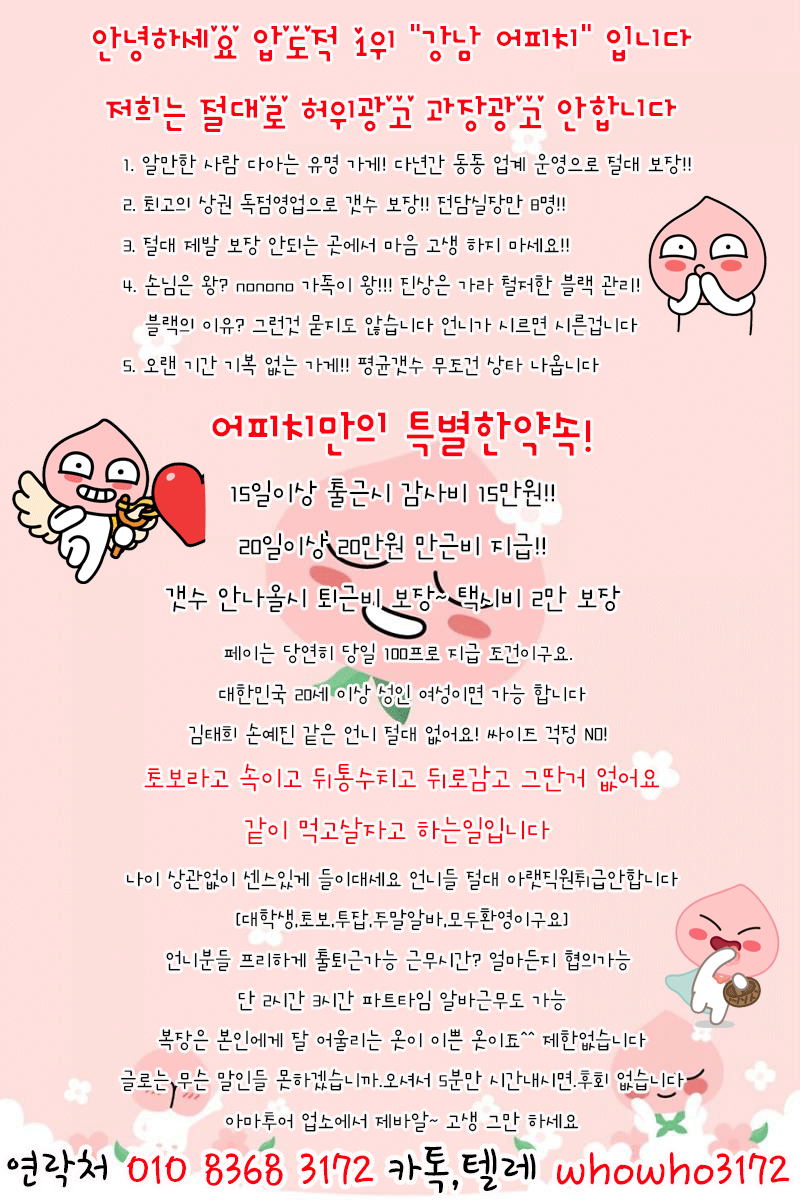 안녕하세요 압도적 1위 "강남 어피치" 입니다
저희는 절대로 허위광고 과장광고 안합니다
1. 알만한 사람 다아는 유명 가게! 다년간 동종 업계 운영으로 절대 보장!!
2. 최고의 상권 독점영업으로 갯수 보장!! 전담실장만 8명!!
3. 절대 제발 보장 안되는 곳에서 마음 고생 하지 마세요!!
4. 손님은 왕? nonono 가족이 왕!!! 진상은 가라 철저한 블랙 관리!
블랙의 이유? 그런것 묻지도 않습니다 언니가 시르면 시른겁니다
5. 오랜 기간 기복 없는 가게!! 평균갯수 무조건 상타 나옵니다
어피치만의 특별한약속!
15일이상 출근시 감사비 15만원!!
20일이상 20만원 만근비 지급!!
갯수 안나올시 퇴근비 보장~ 택시비 2만 보장
페이는 당연히 당일 100프로 지급 조건이구요.
대한민국 20세 이상 성인 여성이면 가능 합니다
김태희 손예진 같은 언니 절대 없어요! 싸이즈 걱정 NO!
초보라고 속이고 뒤통수치고 뒤로감고 그딴거 없어요
같이 먹고살자고 하는일입니다
나이 상관없이 센스있게 들이대세요 언니들 절대 아랫직원취급안합니다
[대학생,초보,투잡,주말알바,모두환영이구요]
언니분들 프리하게 출퇴근가능 근무시간? 얼마든지 협의가능
단 2시간 3시간 파트타임 알바근무도 가능
복장은 본인에게 잘 어울리는 옷이 이쁜 옷이죠^^ 제한없습니다
글로는 무슨 말인들 못하겠습니까.오셔서 5분만 시간내시면.후회 없습니다
아마투어 업소에서 제바알~ 고생 그만 하세요
연락처 010 8368 3172 카톡,텔레 whowho3172